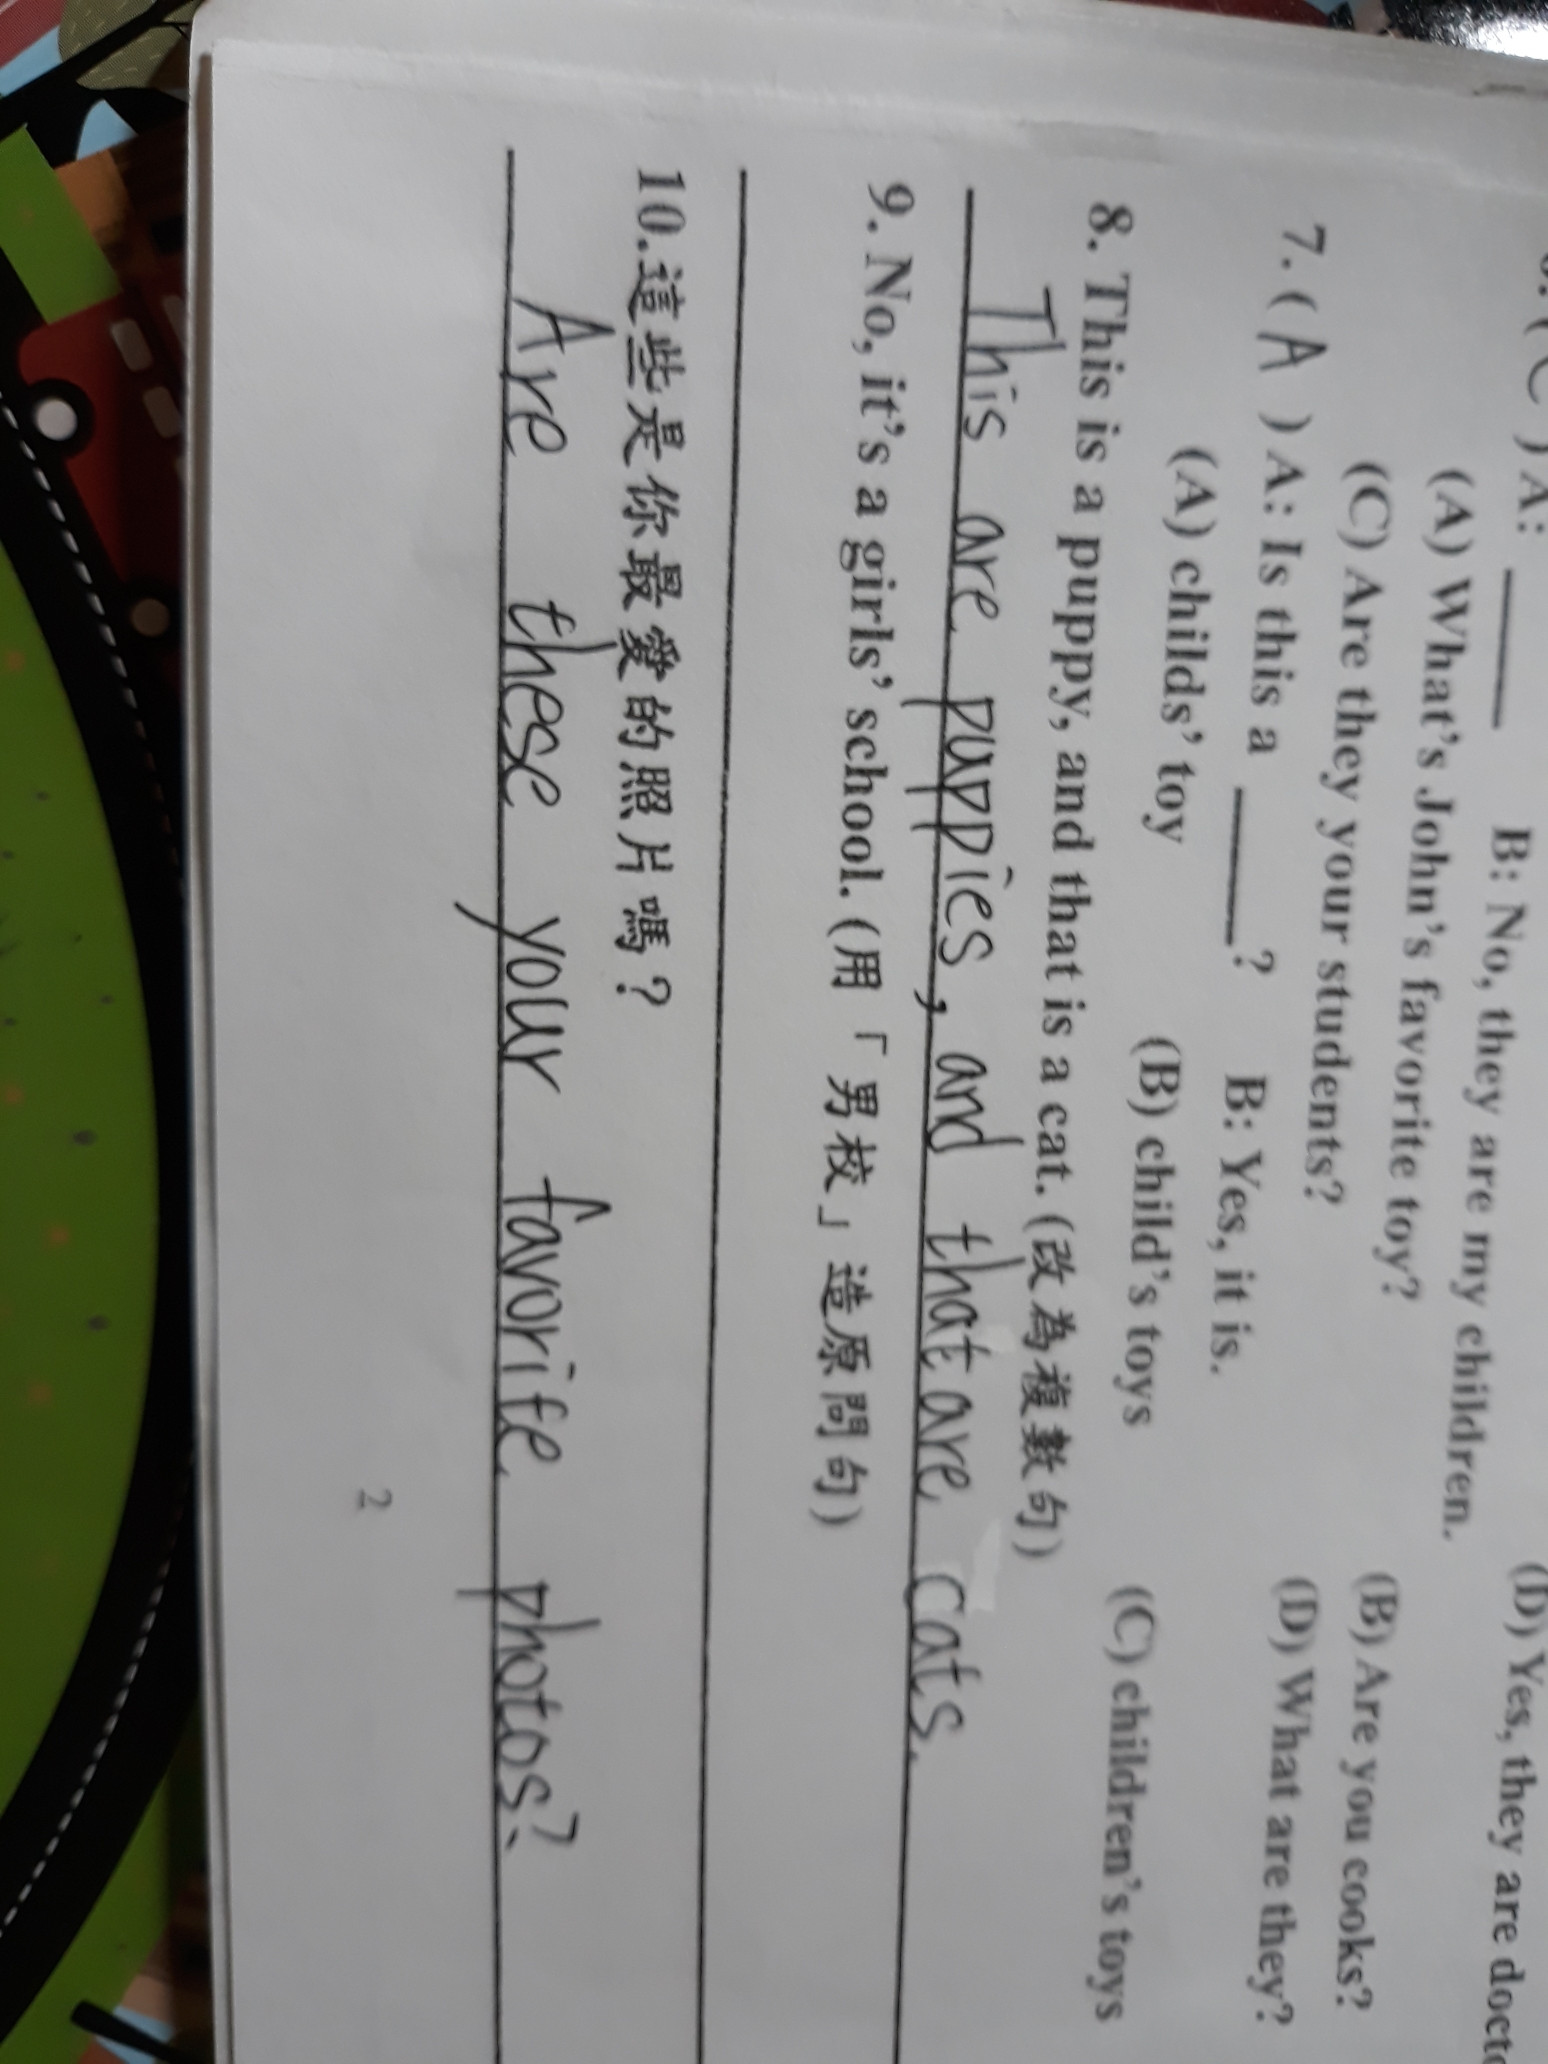 (C) A: ____ B: No, they are my children.
(A) What's John's favorite toy? (B) Are you cooks?
(C) Are they your students? (D) What are they?
7. ( A ) A: Is this a ____? B: Yes, it is. (D) Yes, they are
(A) childs' toy (B) child's toys (C) children's toys
8. This is a puppy, and that is a cat. (改為複數句)
This are puppies, and that are cats.
9. No, it's a girls' school. (用「男校」造原問句)
10.這些是你最愛的照片嗎?
Are these your favorite photos?
2